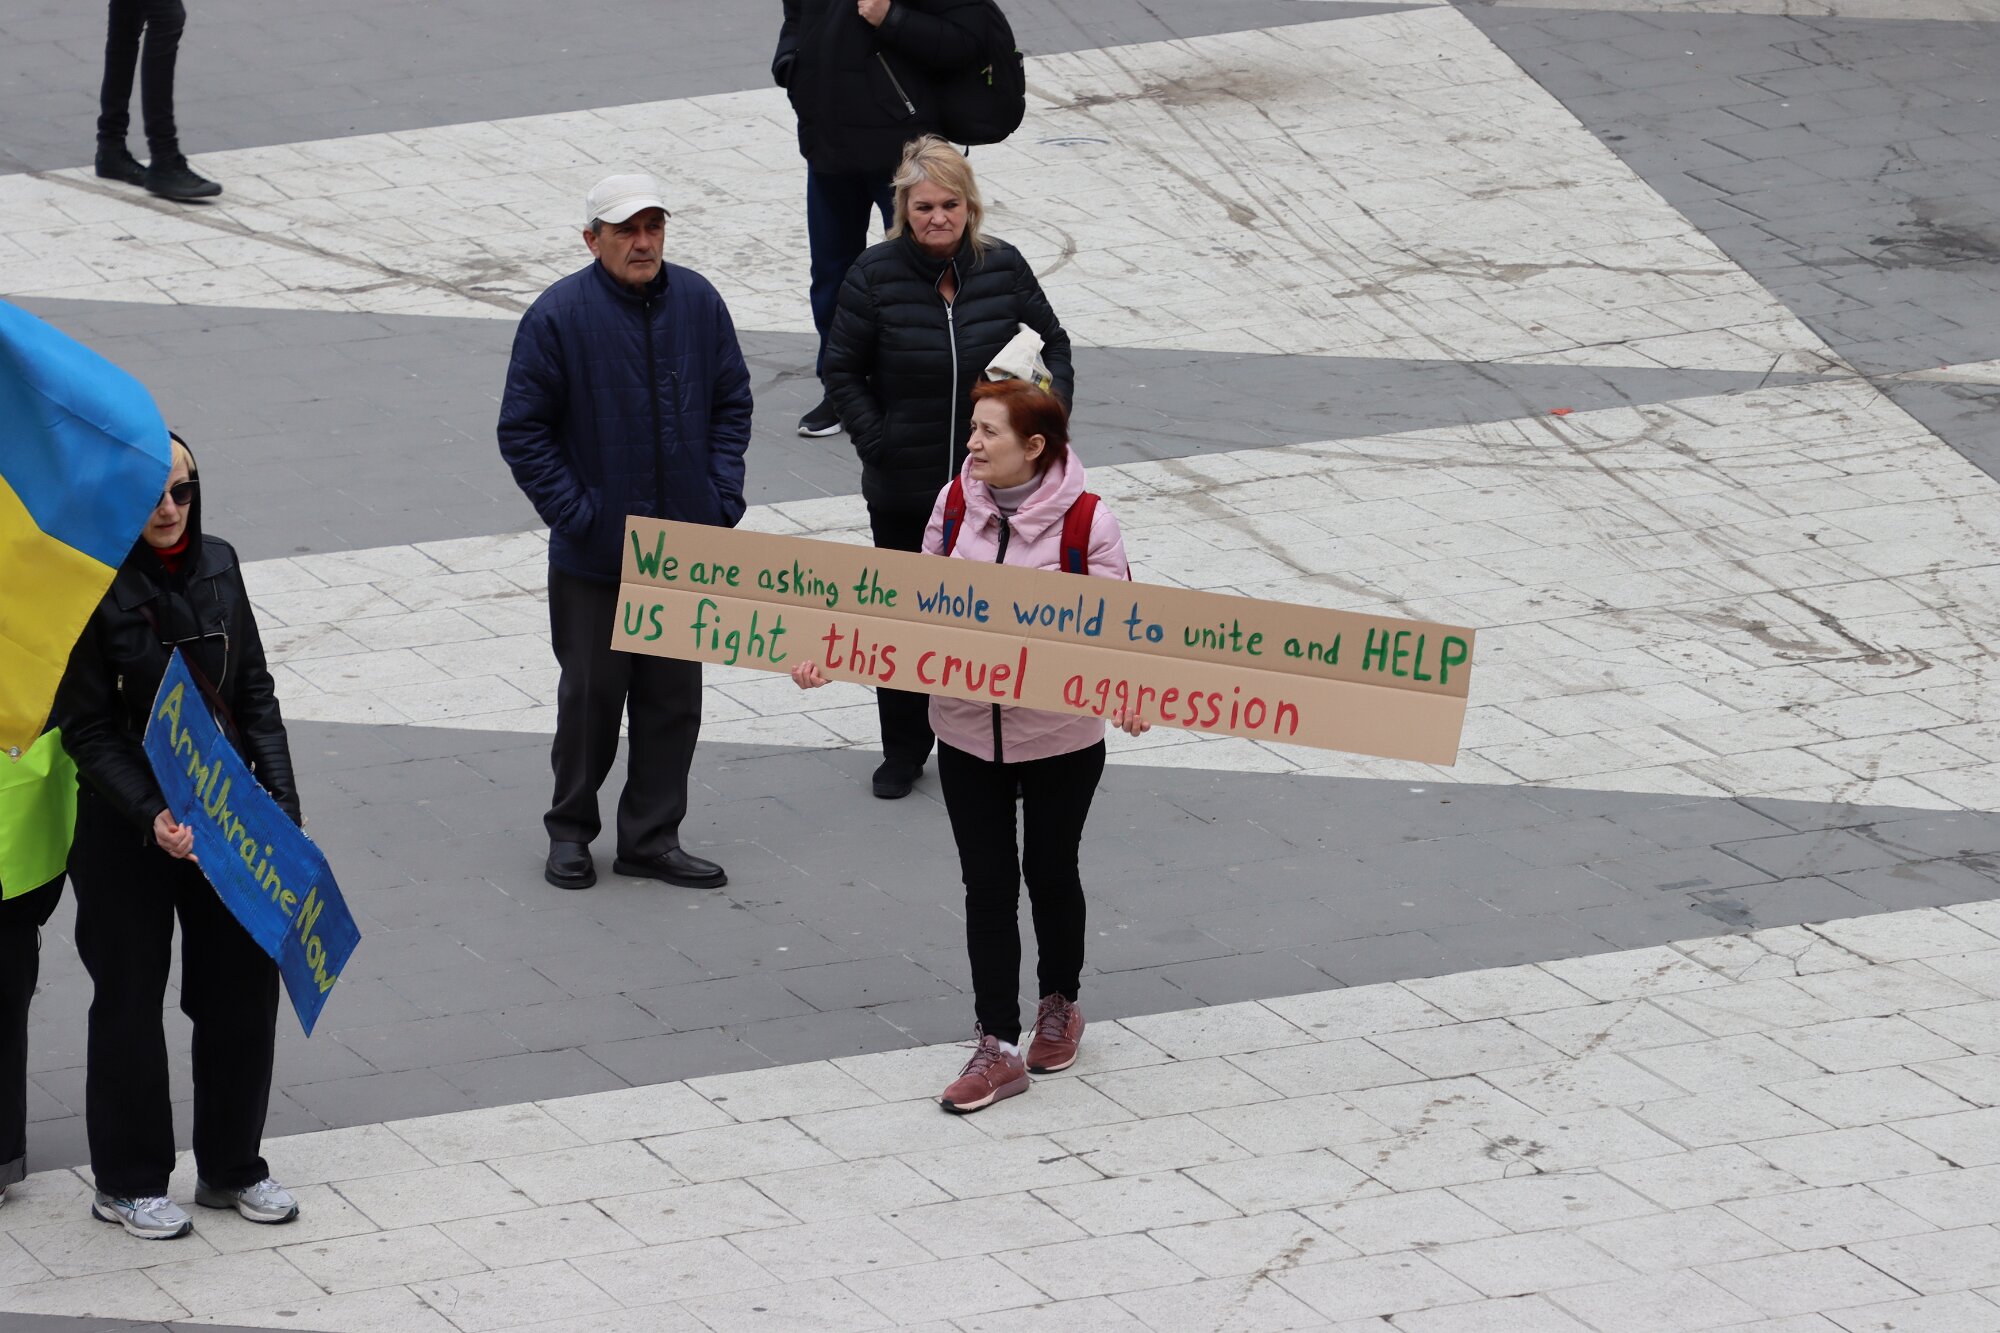 We are asking the whole world to unite and HELP
us fight this cruel aggression
ArmUkraineNow